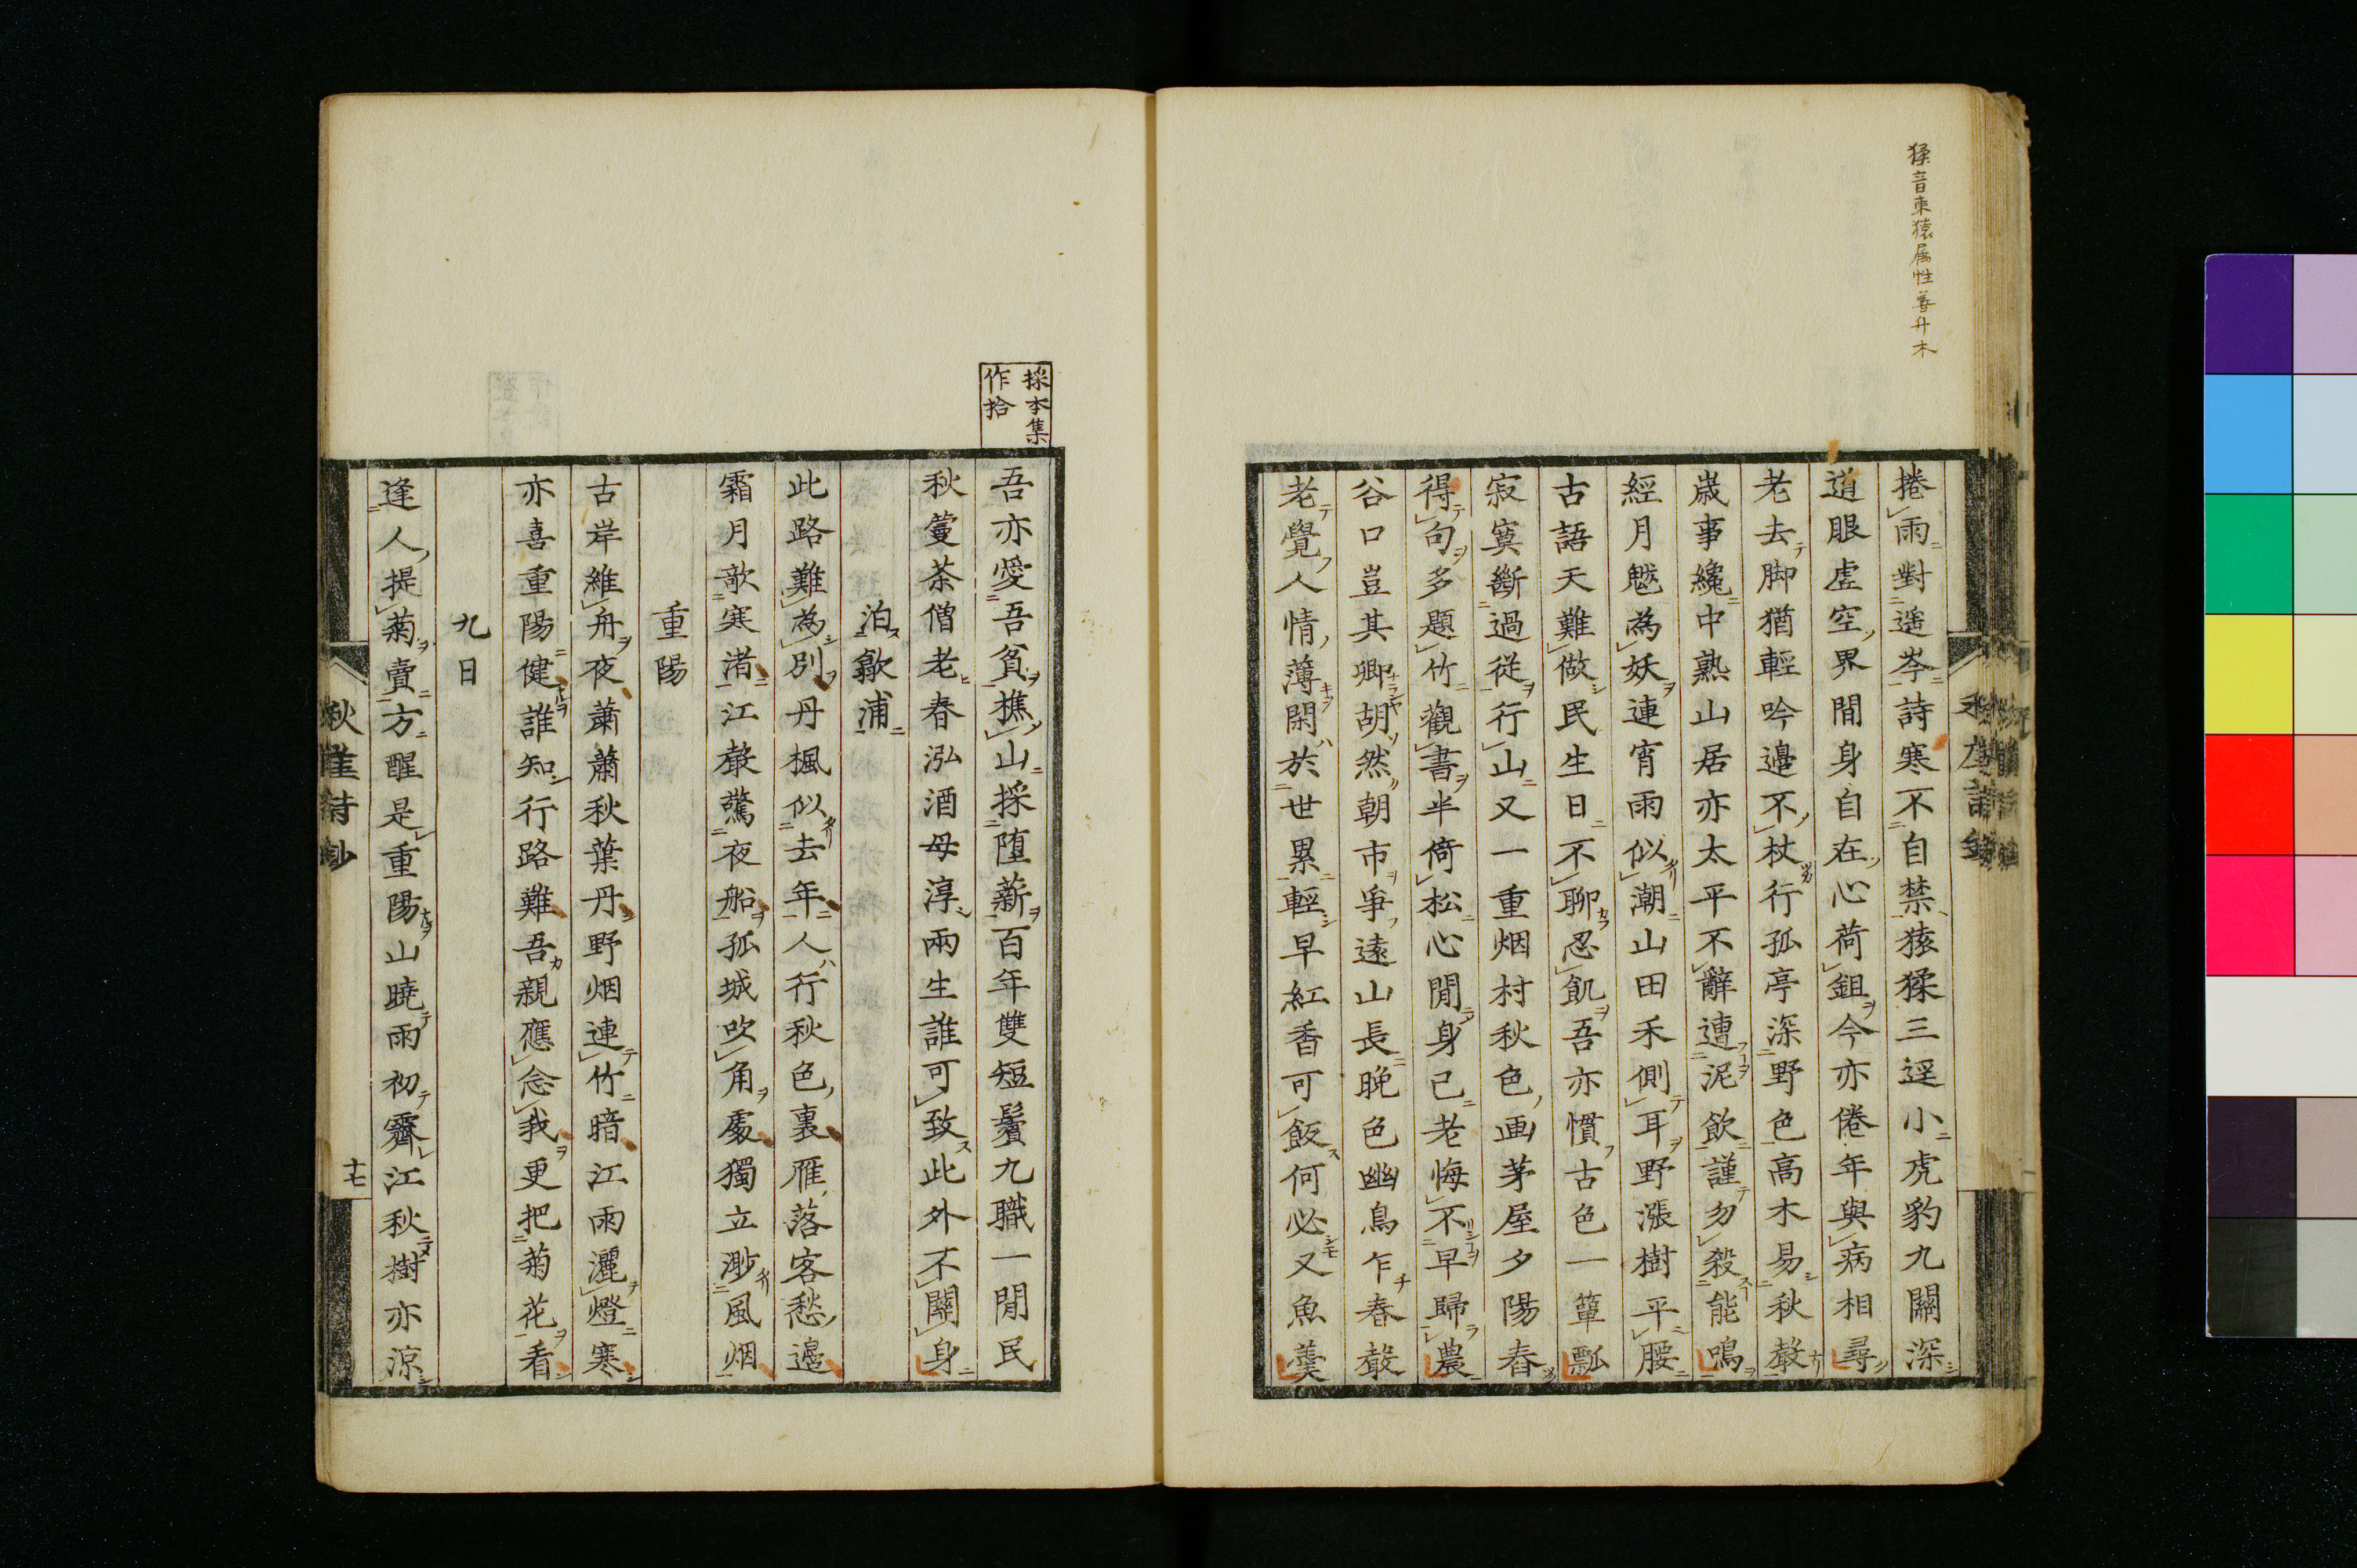 猱音柔猿属性善升木
捲雨對遥岑詩寒不自禁猿猱三逕小虎豹九關深
道眼虚空界閒身自在心荷鉏今亦倦年與病相尋
老去脚猶輕吟邊不杖行孤亭深野色高木易秋聲
歳事纔中熟山居亦太平不辭遭泥飲謹勿殺能鳴
經月魃為妖連宵雨似潮山田禾側耳野漲樹平腰
古語天難做民生日不聊忍飢吾亦慣古色一簞瓢
寂寞斷過從行山又一重烟村秋色画茅屋夕陽舂
得句多題竹觀書半倚松心閒身已老悔不早歸農
谷口豈其卿胡然朝市爭遠山長晩色幽鳥乍春聲
老覺人情薄閑於世累輕早紅香可飯何必又魚羹
秋崖詩鈔
採本集
作拾
吾亦愛吾貧樵山採堕薪百年雙短鬢九職一閒民
秋蔓茶僧老春泓酒母淳兩生誰可致此外不關身
泊歙浦
此路難為別丹楓似去年人行秋色裏雁落客愁邊
霜月歌寒渚江聲驚夜船孤城吹角處獨立渺風烟
重陽
古岸維舟夜蕭蕭秋葉丹野烟連竹暗江雨灑燈寒
亦喜重陽健誰知行路難吾親應念我更把菊花看
九日
逢人提菊賣方醒是重陽山曉雨初霽江秋樹亦涼
秋崖詩鈔
十七